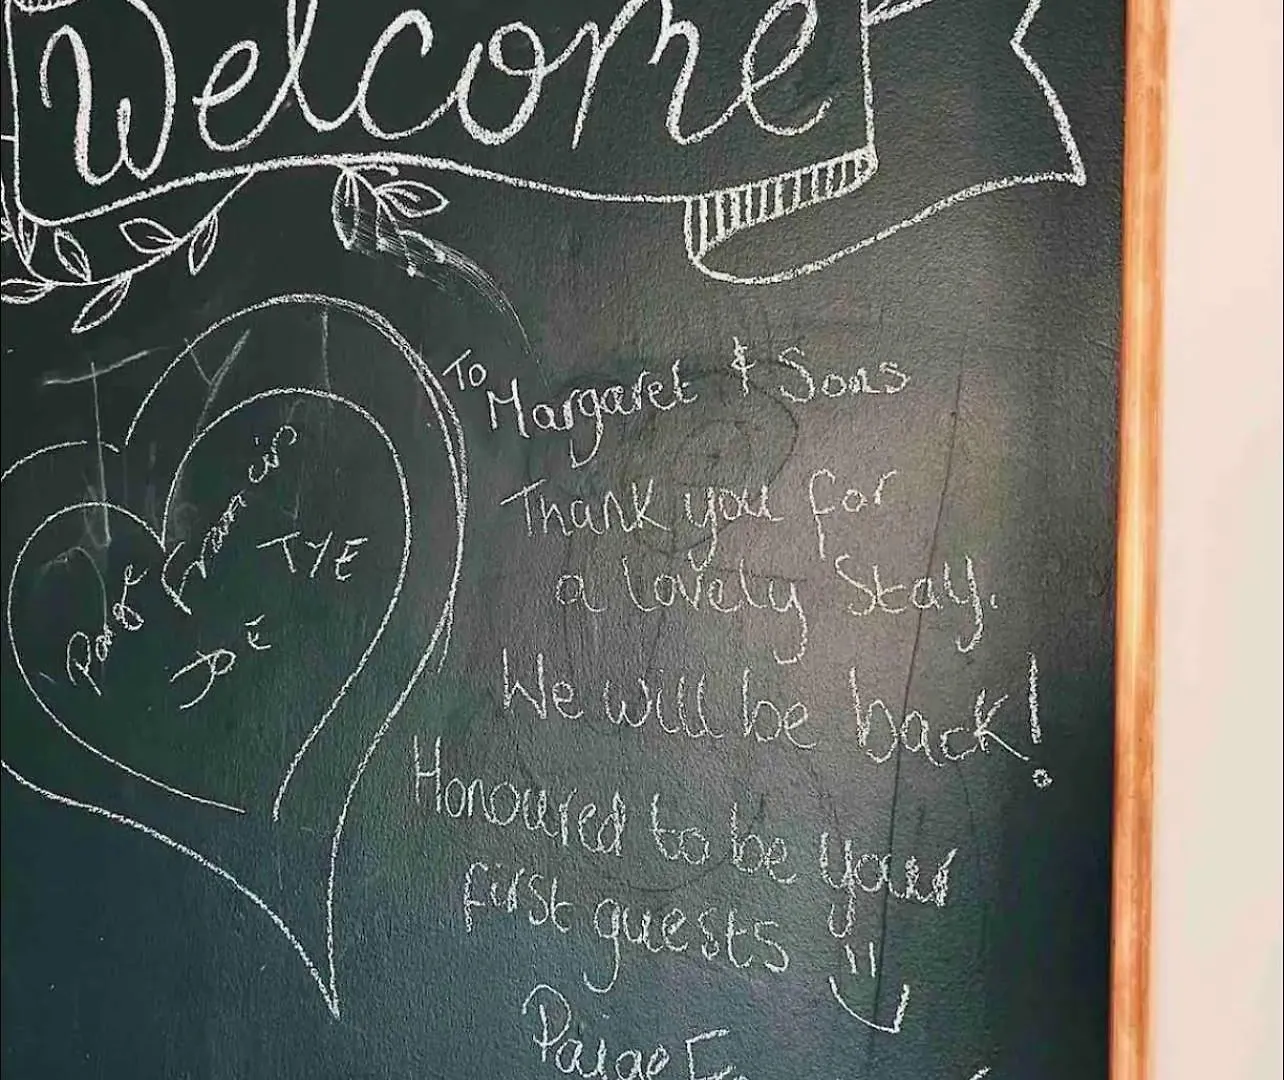 Welcome
TYE
Francis
TYE
Joe
To
Margaret & Sons
Thank you for
a lovely Stay.
We will be back!
Honoured to be your
first guests
Paige